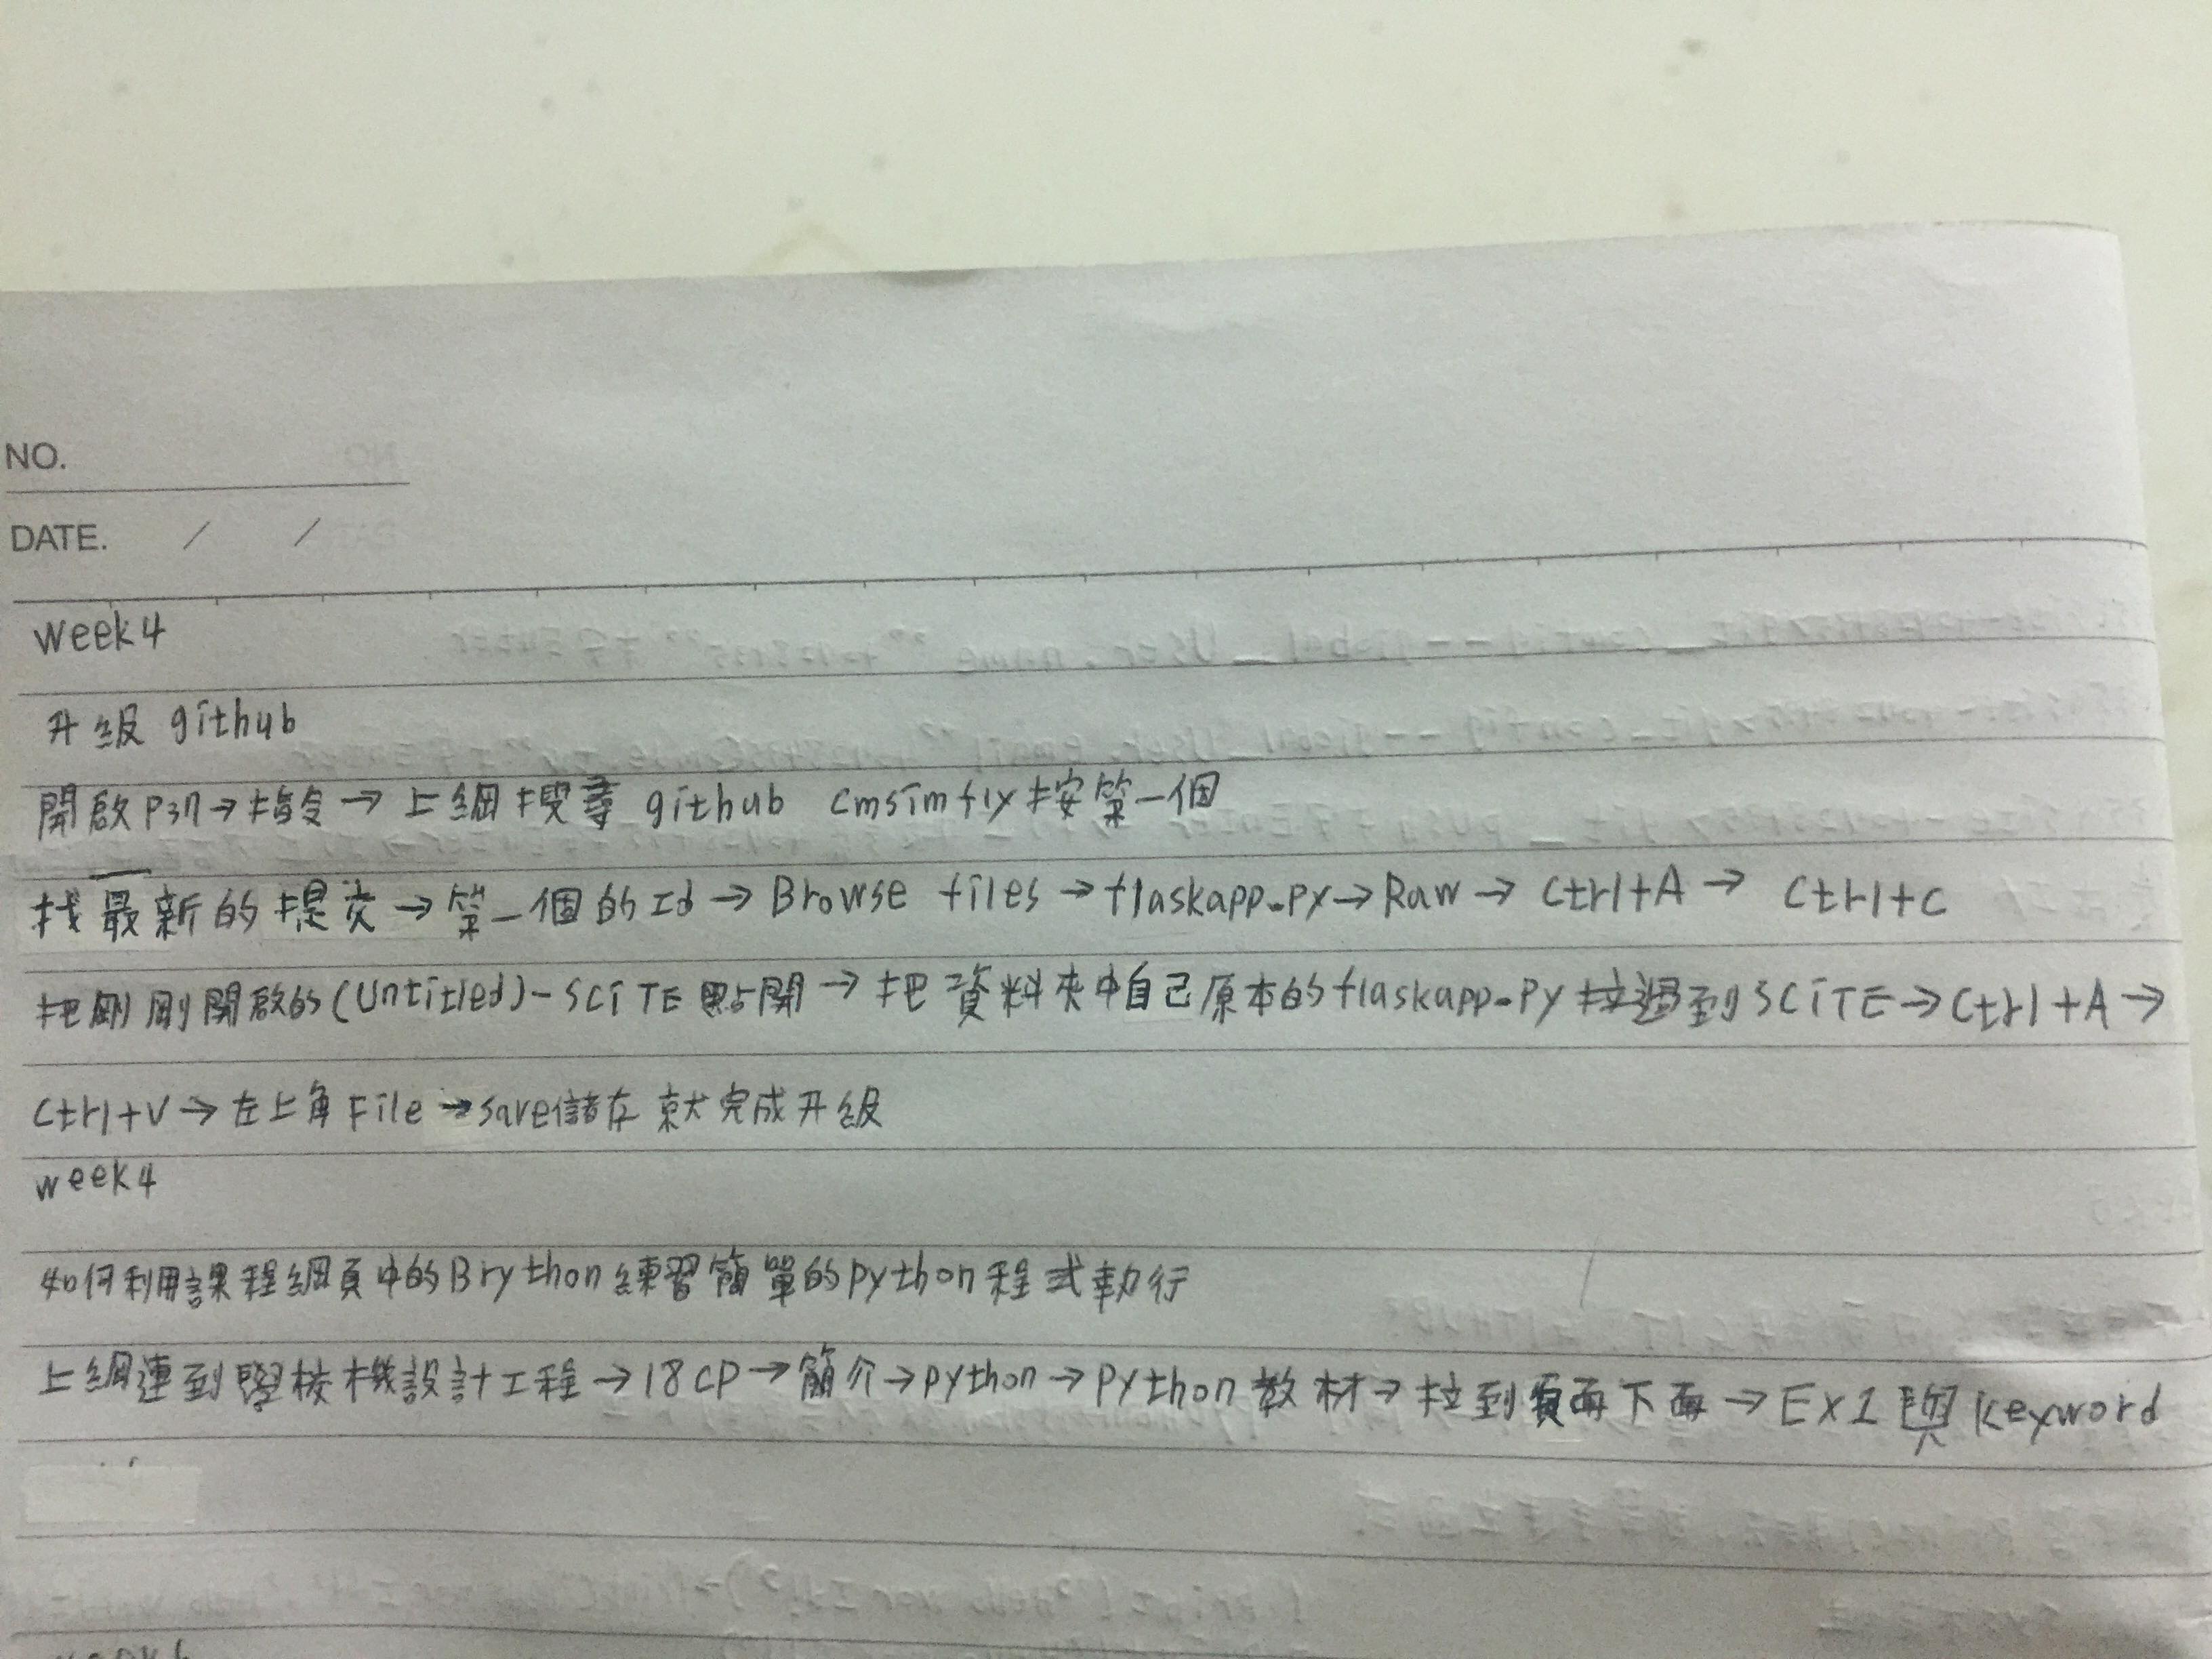 NO.
DATE. / /
week4
升級 github
開啟P37→指令→上網搜尋 github cmsimfly按第一個
找最新的提交→第一個的Id→Browse files→flaskapp.py→Raw→Ctrl+A→ Ctrl+C
把剛剛開啟的(Untitled)-SCiTE點開→把資料夾中自己原本的flaskapp.py拉過到SCiTE→Ctrl+A→
Ctrl+V→左上角File→save儲存就完成升級
week4
如何利用課程網頁中的Brython練習簡單的python程式執行
上網連到學校機設計工程→18CP→簡介→python→Python教材→拉到頁面下面→EX1與keyword